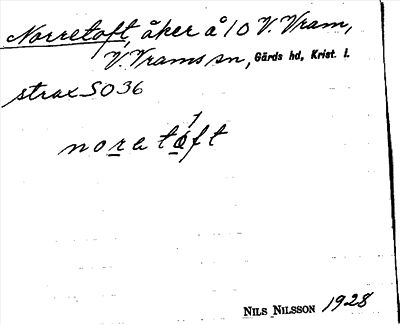 Norretoft, åker å 10 V. Vram,
V. Vrams sn, Gärds hd, Krist. l.
strax SO 36
noratåft
NILS NILSSON 1928